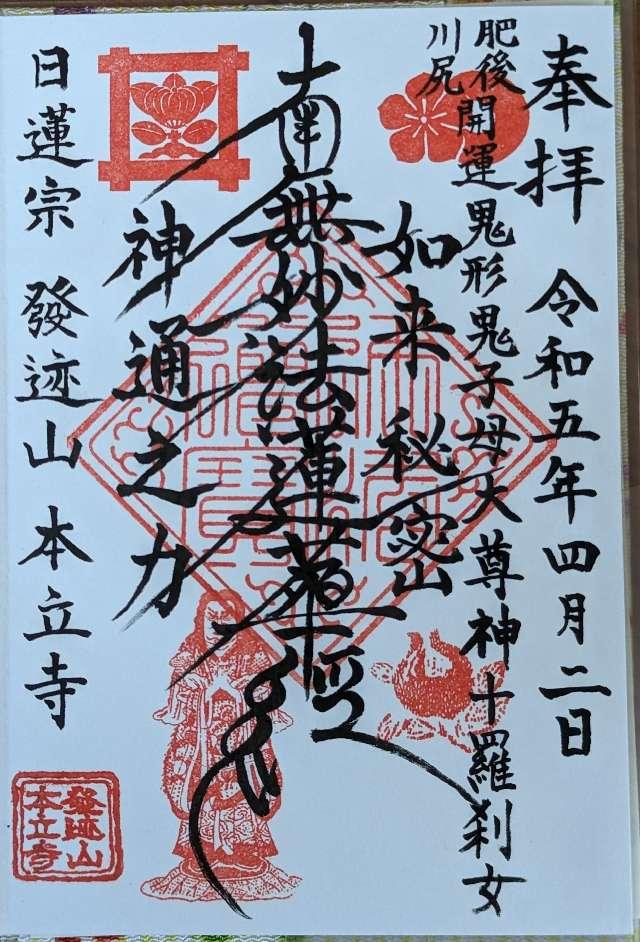 奉拝 令和五年四月二日
肥後
川尻
開運鬼形鬼子母大尊神十羅刹女
如来秘密
南無妙法蓮華経
神通之力
日蓮宗 發迹山 本立寺
發迹山
本立寺